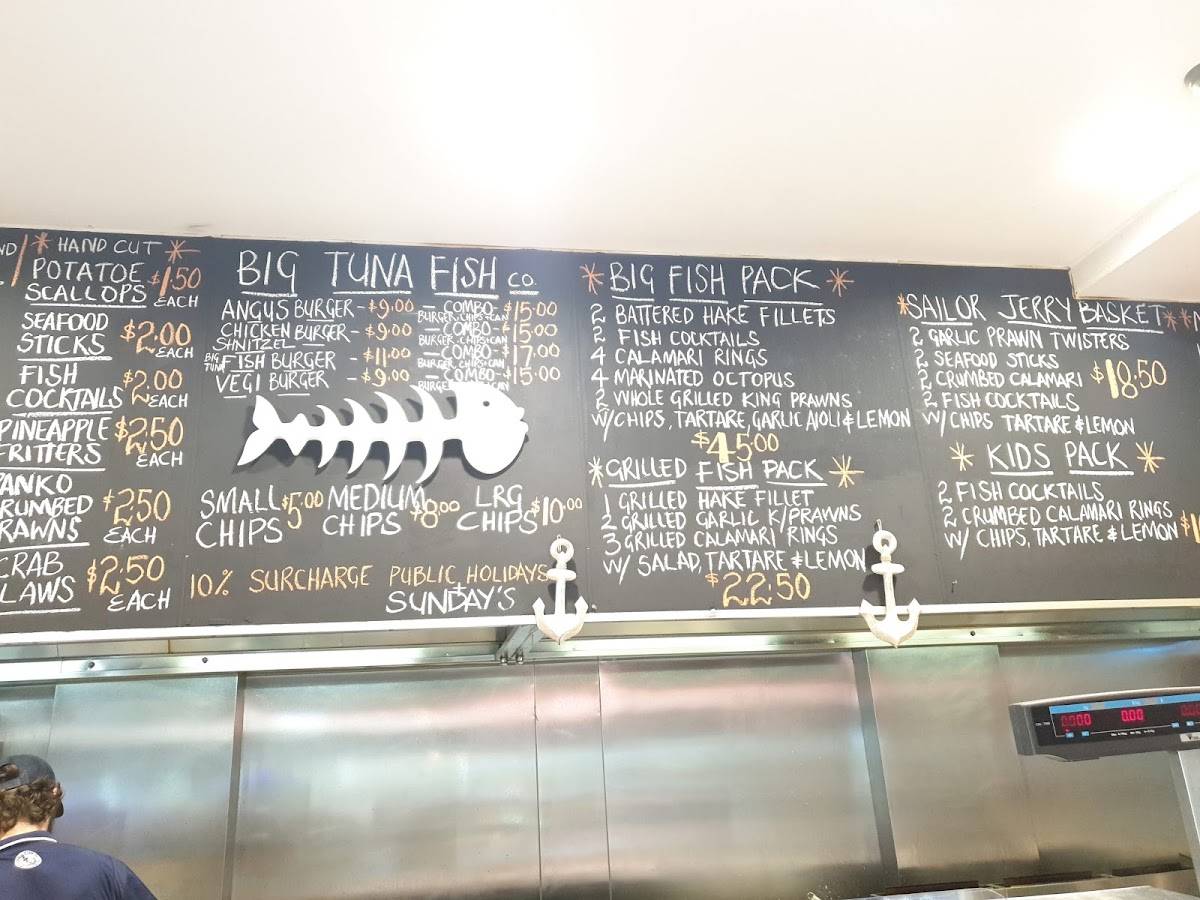 HAND CUT
POTATOE
SCALLOPS $1.50
EACH
SEAFOOD
STICKS $2.00
EACH
FISH
COCKTAILS $2.00
EACH
PINEAPPLE
FRITTERS $2.50
EACH
PANKO
CRUMBED
PRAWNS $2.50
EACH
CRAB
CLAWS $2.50
EACH
BIG TUNA FISH CO.
ANGUS BURGER - $9.00 - COMBO - $15.00
BURGER + CHIPS + CAN
CHICKEN BURGER - $9.00 - COMBO - $15.00
SHNITZEL BURGER + CHIPS + CAN
BIG TUNA FISH BURGER - $11.00 - COMBO - $17.00
BURGER CHIPS + CAN
VEGI BURGER - $9.00 - COMBO - $15.00
SMALL
CHIPS $5.00
MEDIUM
CHIPS $8.00
LRG
CHIPS $10.00
10% SURCHARGE PUBLIC HOLIDAYS
+
SUNDAY'S
* BIG FISH PACK *
2 BATTERED HAKE FILLETS
2 FISH COCKTAILS
4 CALAMARI RINGS
4 MARINATED OCTOPUS
2 WHOLE GRILLED KING PRAWNS
W/CHIPS, TARTARE, GARLIC AIOLI & LEMON
$45.00
* GRILLED FISH PACK *
1 GRILLED HAKE FILLET
2 GRILLED GARLIC K/PRAWNS
3 GRILLED CALAMARI RINGS
W/ SALAD, TARTARE & LEMON
$22.50
* SAILOR JERRY BASKET *
2 GARLIC PRAWN TWISTERS
2 SEAFOOD STICKS
2 CRUMBED CALAMARI $18.50
2 FISH COCKTAILS
W/ CHIPS TARTARE & LEMON
* KIDS PACK *
2 FISH COCKTAILS
2 CRUMBED CALAMARI RINGS
W/ CHIPS, TARTARE & LEMON
0.00